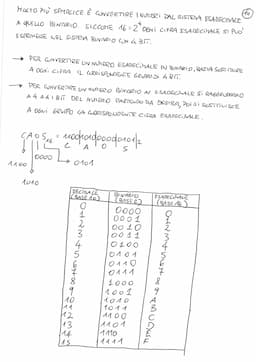 MOLTO PIÙ SEMPLICE È CONVERTIRE I NUMERI DAL SISTEMA ESADECIMALE
A QUELLO BINARIO. SICCOME 16 = 2⁴ OGNI CIFRA ESADECIMALE SI PUÒ
ESPRIMERE NEL SISTEMA BINARIO CON 4 BIT.
→ PER CONVERTIRE UN NUMERO ESADECIMALE IN BINARIO, BASTA SOSTITUIRE
A OGNI CIFRA IL CORRISPONDENTE GRUPPO DI 4 BIT.
→ PER CONVERTIRE UN NUMERO BINARIO IN ESADECIMALE SI RAGGRUPPANO
A 4 A 4 I BIT DEL NUMERO PARTENDO DA DESTRA, POI SI SOSTITUISCE
A OGNI GRUPPO LA CORRISPONDENTE CIFRA ESADECIMALE.
CA05₁₆ = 1100|1010|0000|0101|₂
C A 0 5
0000
1100 → 0101
1010
DECIMALE BINARIO ESADECIMALE
(BASE 10) (BASE 2) (BASE 16)
0 0000 0
1 0001 1
2 0010 2
3 0011 3
4 0100 4
5 0101 5
6 0110 6
7 0111 7
8 1000 8
9 1001 9
10 1010 A
11 1011 B
12 1100 C
13 1101 D
14 1110 E
15 1111 F